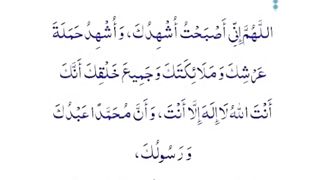 اللَّهُمَّ إِنِّي أَصْبَحْتُ أُشْهِدُكَ، وَأُشْهِدُ حَمَلَةَ
عَرْشِكَ وَمَلَائِكَتَكَ وَجَمِيعَ خَلْقِكَ أَنَّكَ
أَنْتَ اللهُ لَا إِلَهَ إِلَّا أَنْتَ، وَأَنَّ مُحَمَّدًا عَبْدُكَ
وَرَسُولُكَ،